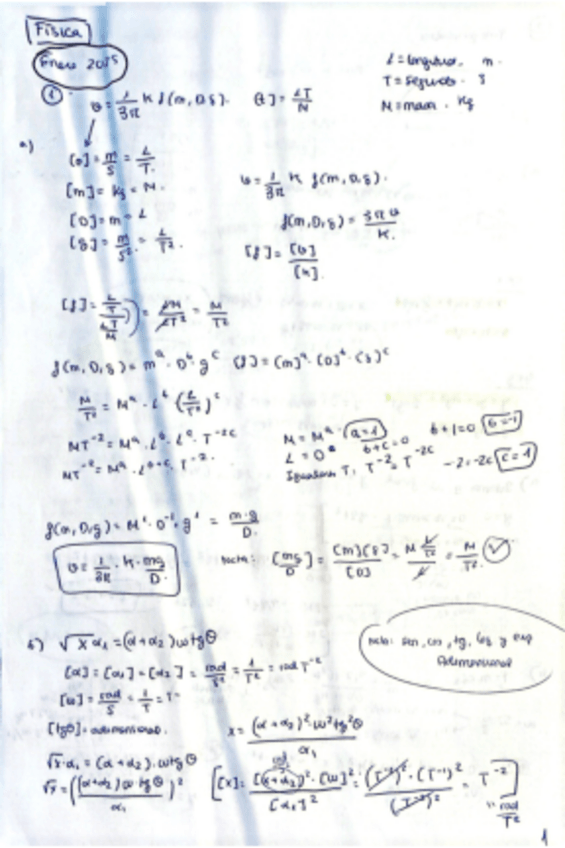 Física
Enero 2025
L = longitud. m.
T = segundo. s
M = masa. Kg
① v = 1/3π K f(m, D, g). [K] = LT/M
a)
[v] = m/s = L/T.
[m] = Kg = M.
[D] = m = L
[g] = m/s² = L/T².
v = 1/3π K f(m, D, g).
f(m, D, g) = 3πv/K.
[f] = [v]/[K].
[f] = (L/T)/(LT/M) = LM/LT² = M/T²
f(m, D, g) = m^a · D^b · g^c [f] = [m]^a · [D]^b · [g]^c
M/T² = M^a · L^b · (L/T²)^c
MT⁻² = M^a · L^b · L^c · T^-2c
MT⁻² = M^a · L^b+c · T^-2c
M = M^a · a=1 b+1=0 b=-1
b+c=0
T⁻² = T^-2c -2=-2c c=1
f(m, D, g) = M¹ · D⁻¹ · g¹ = m·g/D.
v = 1/3π · K · mg/D
Nota: [mg/D] = [m][g]/[D] = M L/T²/L = M/T².
b) √x α₁ = (α+α₂) ω tgθ
Nota: sen, cos, tg, log y exp
Adimensional
[α] = [α₁] = [α₂] = rad/T² = 1/T² = rad T⁻²
[ω] = rad/s = 1/T = T⁻¹
[tgθ] = adimensional.
x = (α+α₂)² ω² tg²θ/α₁
√x · α₁ = (α+α₂) · ω tgθ
√x = ((α+α₂) ω · tgθ/α₁)²
[x] = [α+α₂]² · [ω]²/[α₁]² = (T⁻²)² · (T⁻¹)²/(T⁻²)² = T⁻²
rad/T²
1